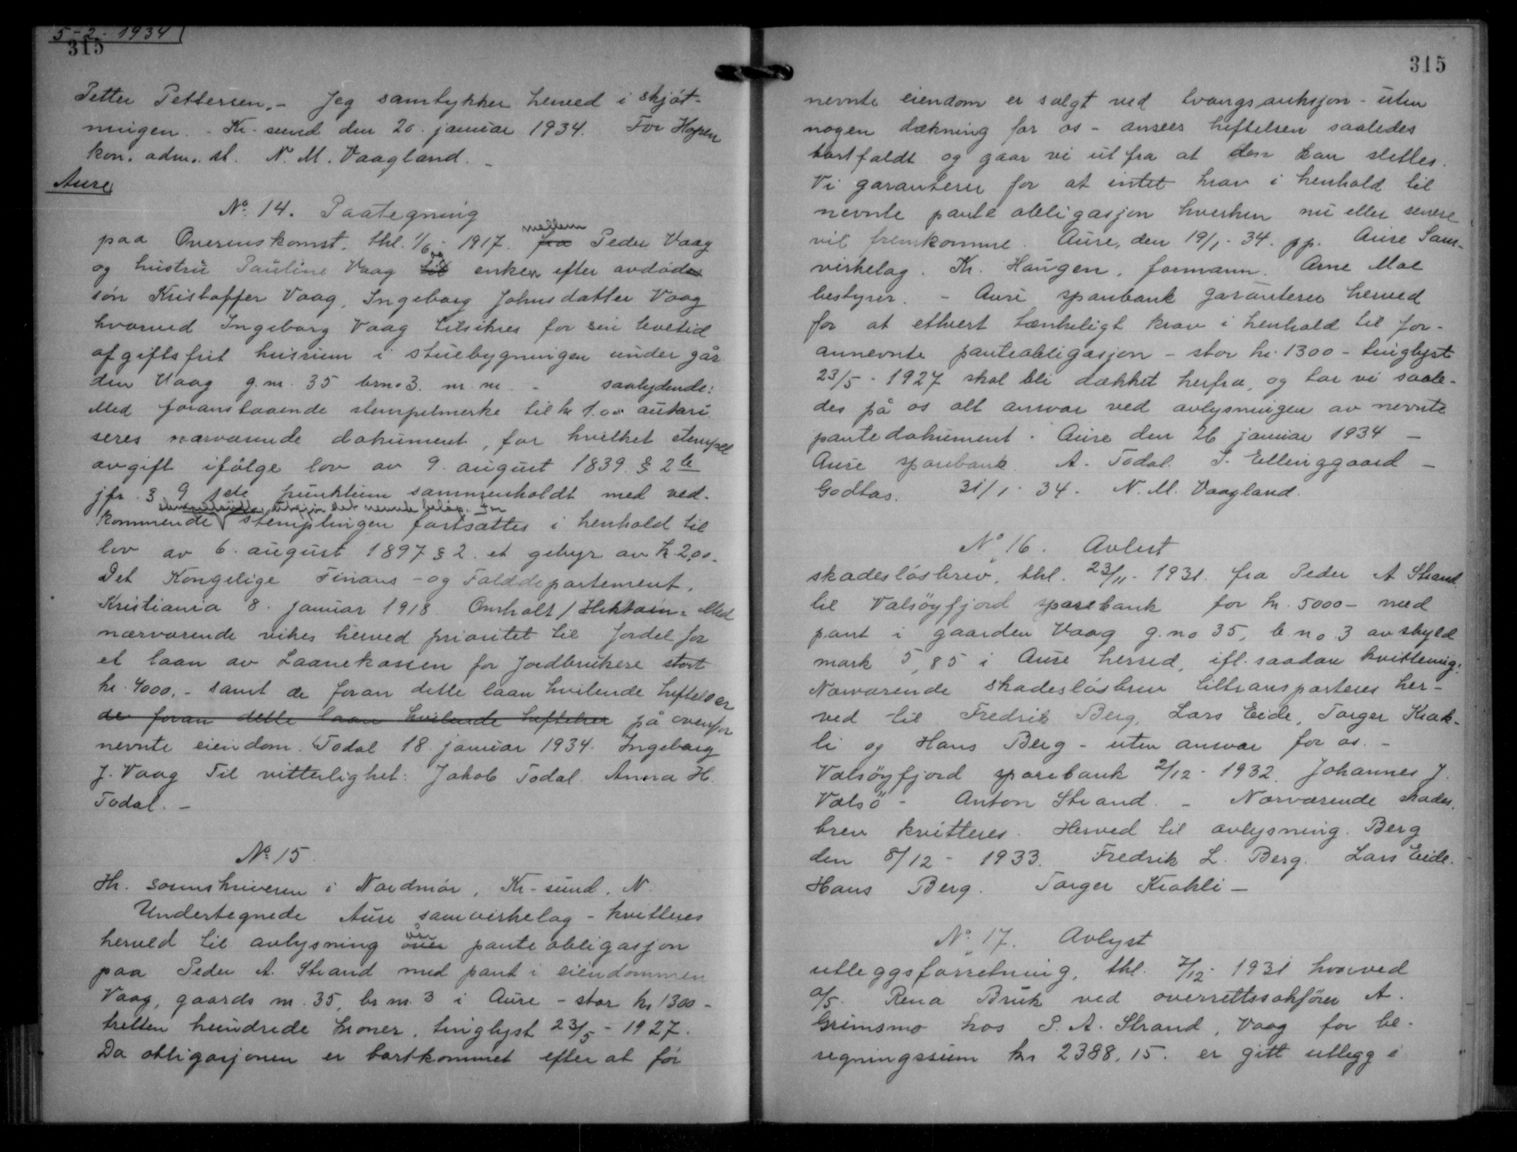 5-2-1934
315
Petter Pettersen. - Jeg samtykker herved i skjøt-
ningen. - Kr-sund den 20. januar 1934. For Hopen
kon. adm. st. N. M. Vaagland. -
Aure
No 14. Paategning
mellem
paa Overenskomst, thl. 1/6 - 1917. fra Peder Vaag
og hustru Pauline Vaag til enken efter avdøde
søn Kristoffer Vaag, Ingeborg Johnsdatter Vaag
hvorved Ingeborg Vaag tilsikres for sin levetid
afgiftsfrit husrum i stuebygningen under går
den Vaag g.nr. 35 brno 3. m. m. - saalydende:
Med foranstaaende stempelmerke til kr 1.00 autori
seres nærværende dokument, for hvilket stempel
avgift ifølge lov av 9. august 1839. § 2 
jfr. § 9 punktum sammenholdt med ved-
det nevnte beløp. For
kommende stemplingen fortsattes i henhold til
lov av 6. august 1897 § 2 et gebyr av kr 2,00.
Det Kongelige Finans- og Tolddepartement.
Kristiania 8. januar 1918 Omholt / Med
nærværende vikes herved prioritet til fordel for
et laan av Laanekassen for Jordbrukere stort
kr. 4000,- samt de foran dette laan hvilende heftelser
de foran dette laan hvilende heftelser på ovenfor
nevnte eiendom. Todal 18. januar 1934. Ingeborg
J. Vaag Til vitterlighet: Jakob Todal. Anna H.
Todal. -
No 15.
Hr. sorenskriveren i Nordmør, Kr-sund. N.
Undertegnede Aure samvirkelag - kvitteres
vår
herved til avlysning over panteobligasjon
paa Peder A. Strand med pant i eiendommen
Vaag, gaards nr. 35, br nr. 3 i Aure - stor kr 1300 -
tretten hundrede kroner, tinglyst 23/5 - 1927.
Da obligasjonen er bortkommet efter at før
315
nevnte eiendom er solgt ved tvangsauksjon - uten
nogen dækning for os - ansees heftelsen saaledes
bortfaldt og gaar vi ut fra at den kan slettes.
Vi garanterer for at intet krav i henhold til
nevnte pante obligasjon hverken nu eller senere
vil fremkomme. Aure, den 19/1 - 34. pp. Aure Sam-
virkelag. Kr. Haugen, formann. Arne Moe
bestyrer. - Aure sparebank garanterer herved
for at ethvert tænkeligt krav i henhold til for-
annevnte panteobligasjon - stor kr. 1300 - tinglyst
23/5 - 1927 skal bli dækket herfra, og tar vi saale-
des på os alt ansvar ved avlysningen av nevnte
pantedokument. Aure den 26 januar 1934 -
Aure sparebank A. Todal. S. Ellinggaard -
Godtas. 31/1 - 34. N. M. Vaagland.
No 16. Avlest
skadesløsbrev, thl. 23/11 - 1931. fra Peder A Strand
til Valsøyfjord sparebank for kr. 5000 - med
pant i gaarden Vaag g.no 35, b no 3 av skyld
mark 5,85 i Aure herred, ifl. saadan kvittering:
Nærværende skadesløsbrev tiltransporteres her-
ved til Fredrik Berg, Lars Eide, Torger Krok-
li og Hans Berg - uten ansvar for os. -
Valsøyfjord sparebank 2/12 - 1932. Johannes J.
Valsö - Anton Strand. - Nærværende skades.
brev kvitteres. Herved til avlysning. Berg
den 8/12 - 1933. Fredrik L. Berg. Lars Eide.
Hans Berg. Torger Krokli -
No 17. Avlyst
utleggsforretning, thl. 7/12 - 1931 hvorved
a/s. Rena Bruk ved overrettssakfører A.
Grimsmo hos P. A. Strand, Vaag for be-
regningssum kr 2388,15. er gitt utlegg i